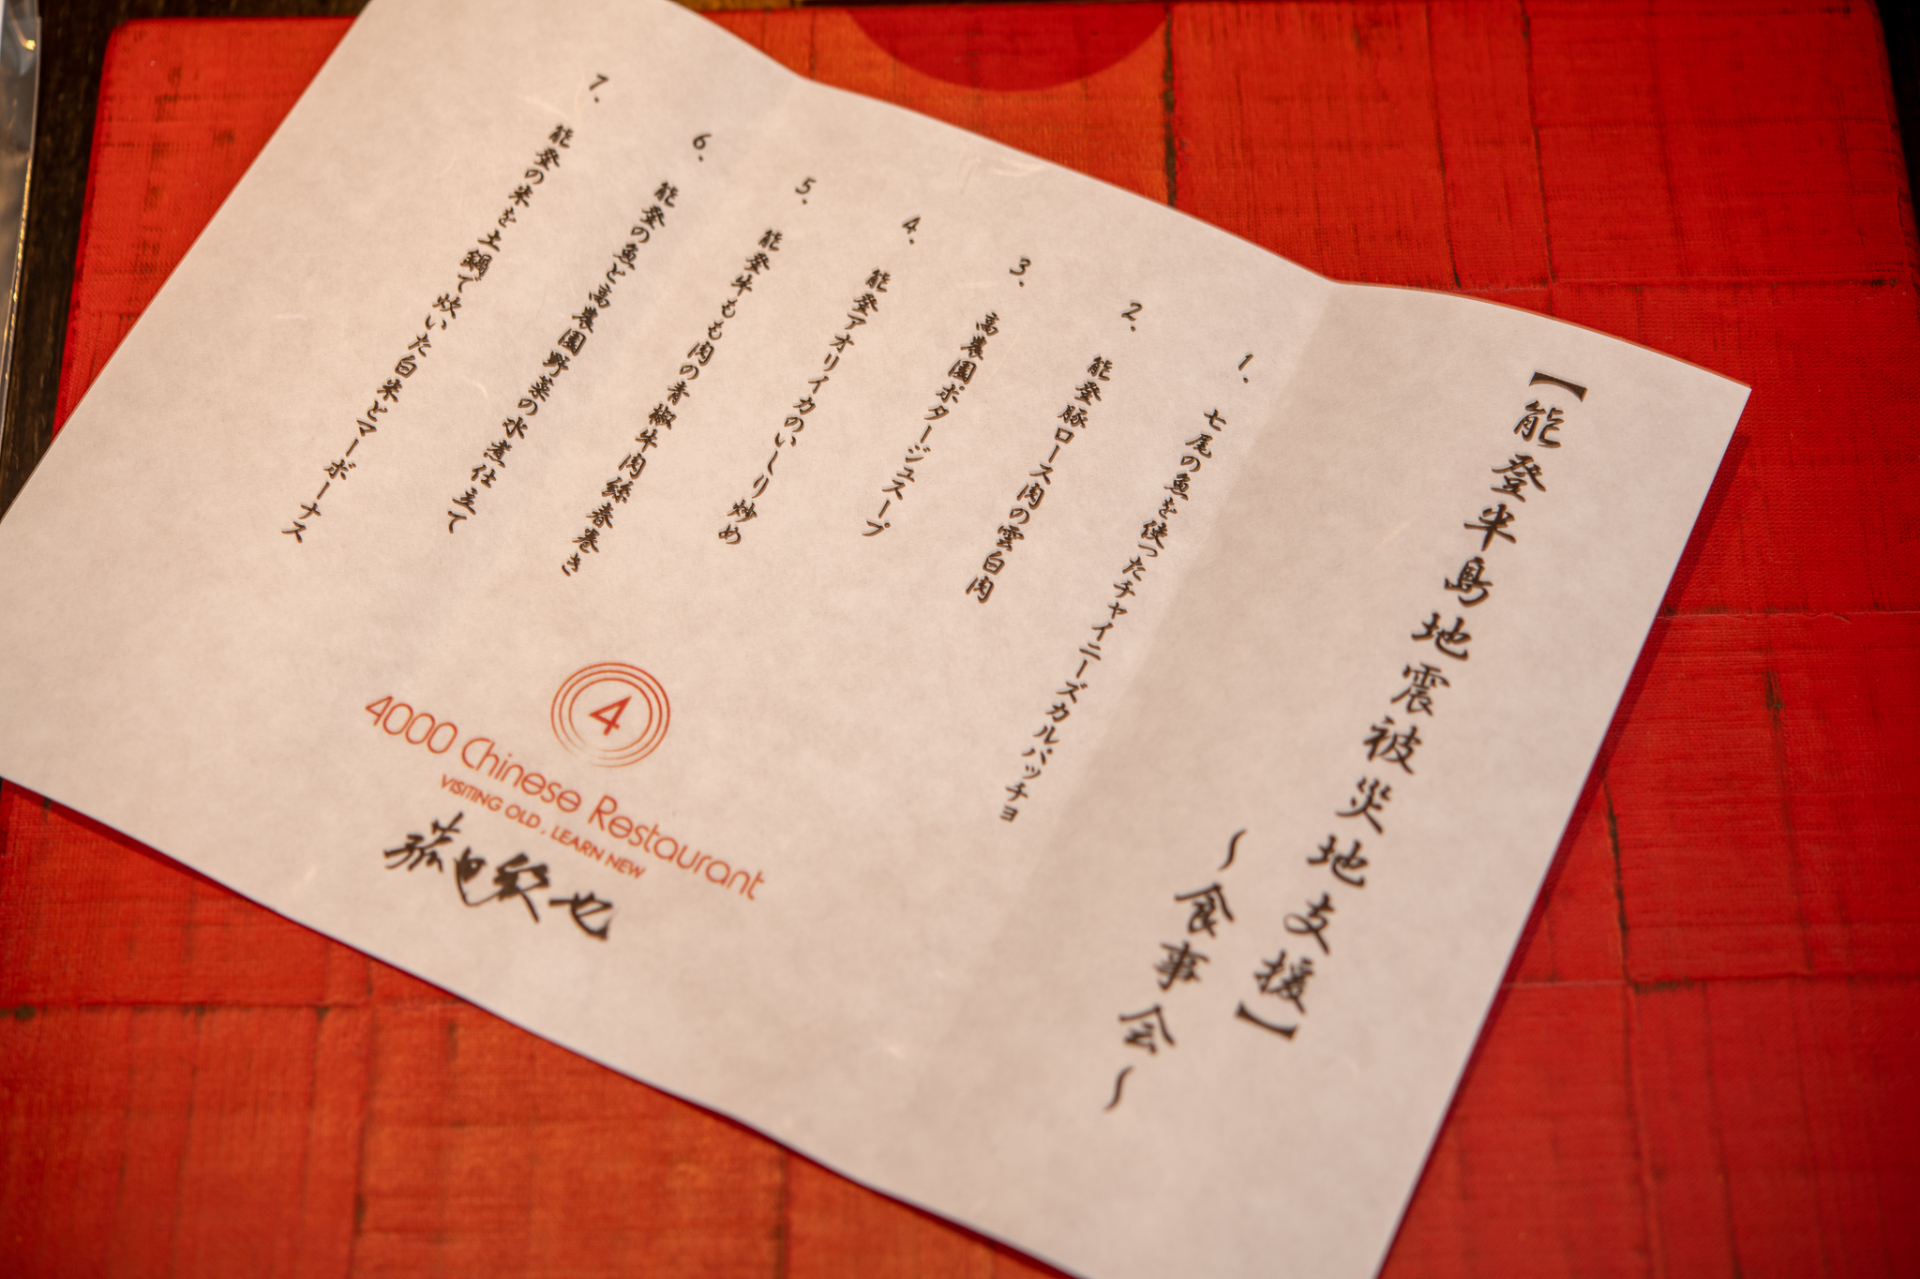 【能登半島地震被災地支援】
〜食事会〜
1. 七尾の魚を使ったチャイニーズカルパッチョ
2. 能登豚ロース肉の雲白肉
3. 高農園ポタージュスープ
4. 能登アオリイカのいしり炒め
5. 能登牛もも肉の青椒牛肉絲春巻き
6. 能登の魚と高農園野菜の水煮仕立て
7. 能登の米を土鍋で炊いた白米とマーボーナス
4
4000 Chinese Restaurant
VISITING OLD, LEARN NEW